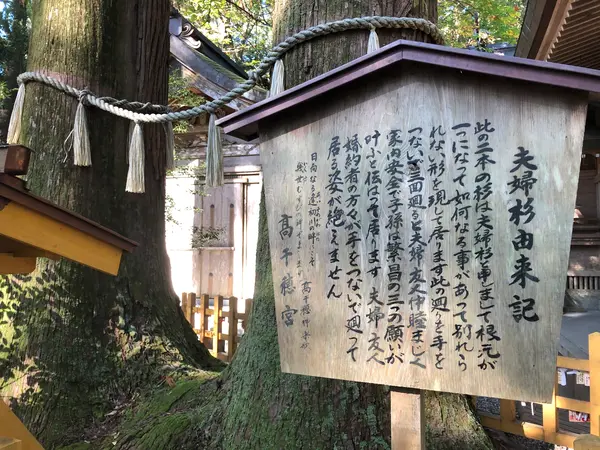 夫婦杉由来記
此の二本の杉は夫婦杉と申しまして根元が
一になって如何なる事があって別れら
れない形を現して居ります此の廻りを手を
つないで三回廻ると夫婦友人仲睦まじく
家内安全子孫の繁昌の三つの願いが
叶うと伝はって居ります 夫婦友人
婚約者の方々が手をつないで廻って
居る姿が絶えません
高千穂宮